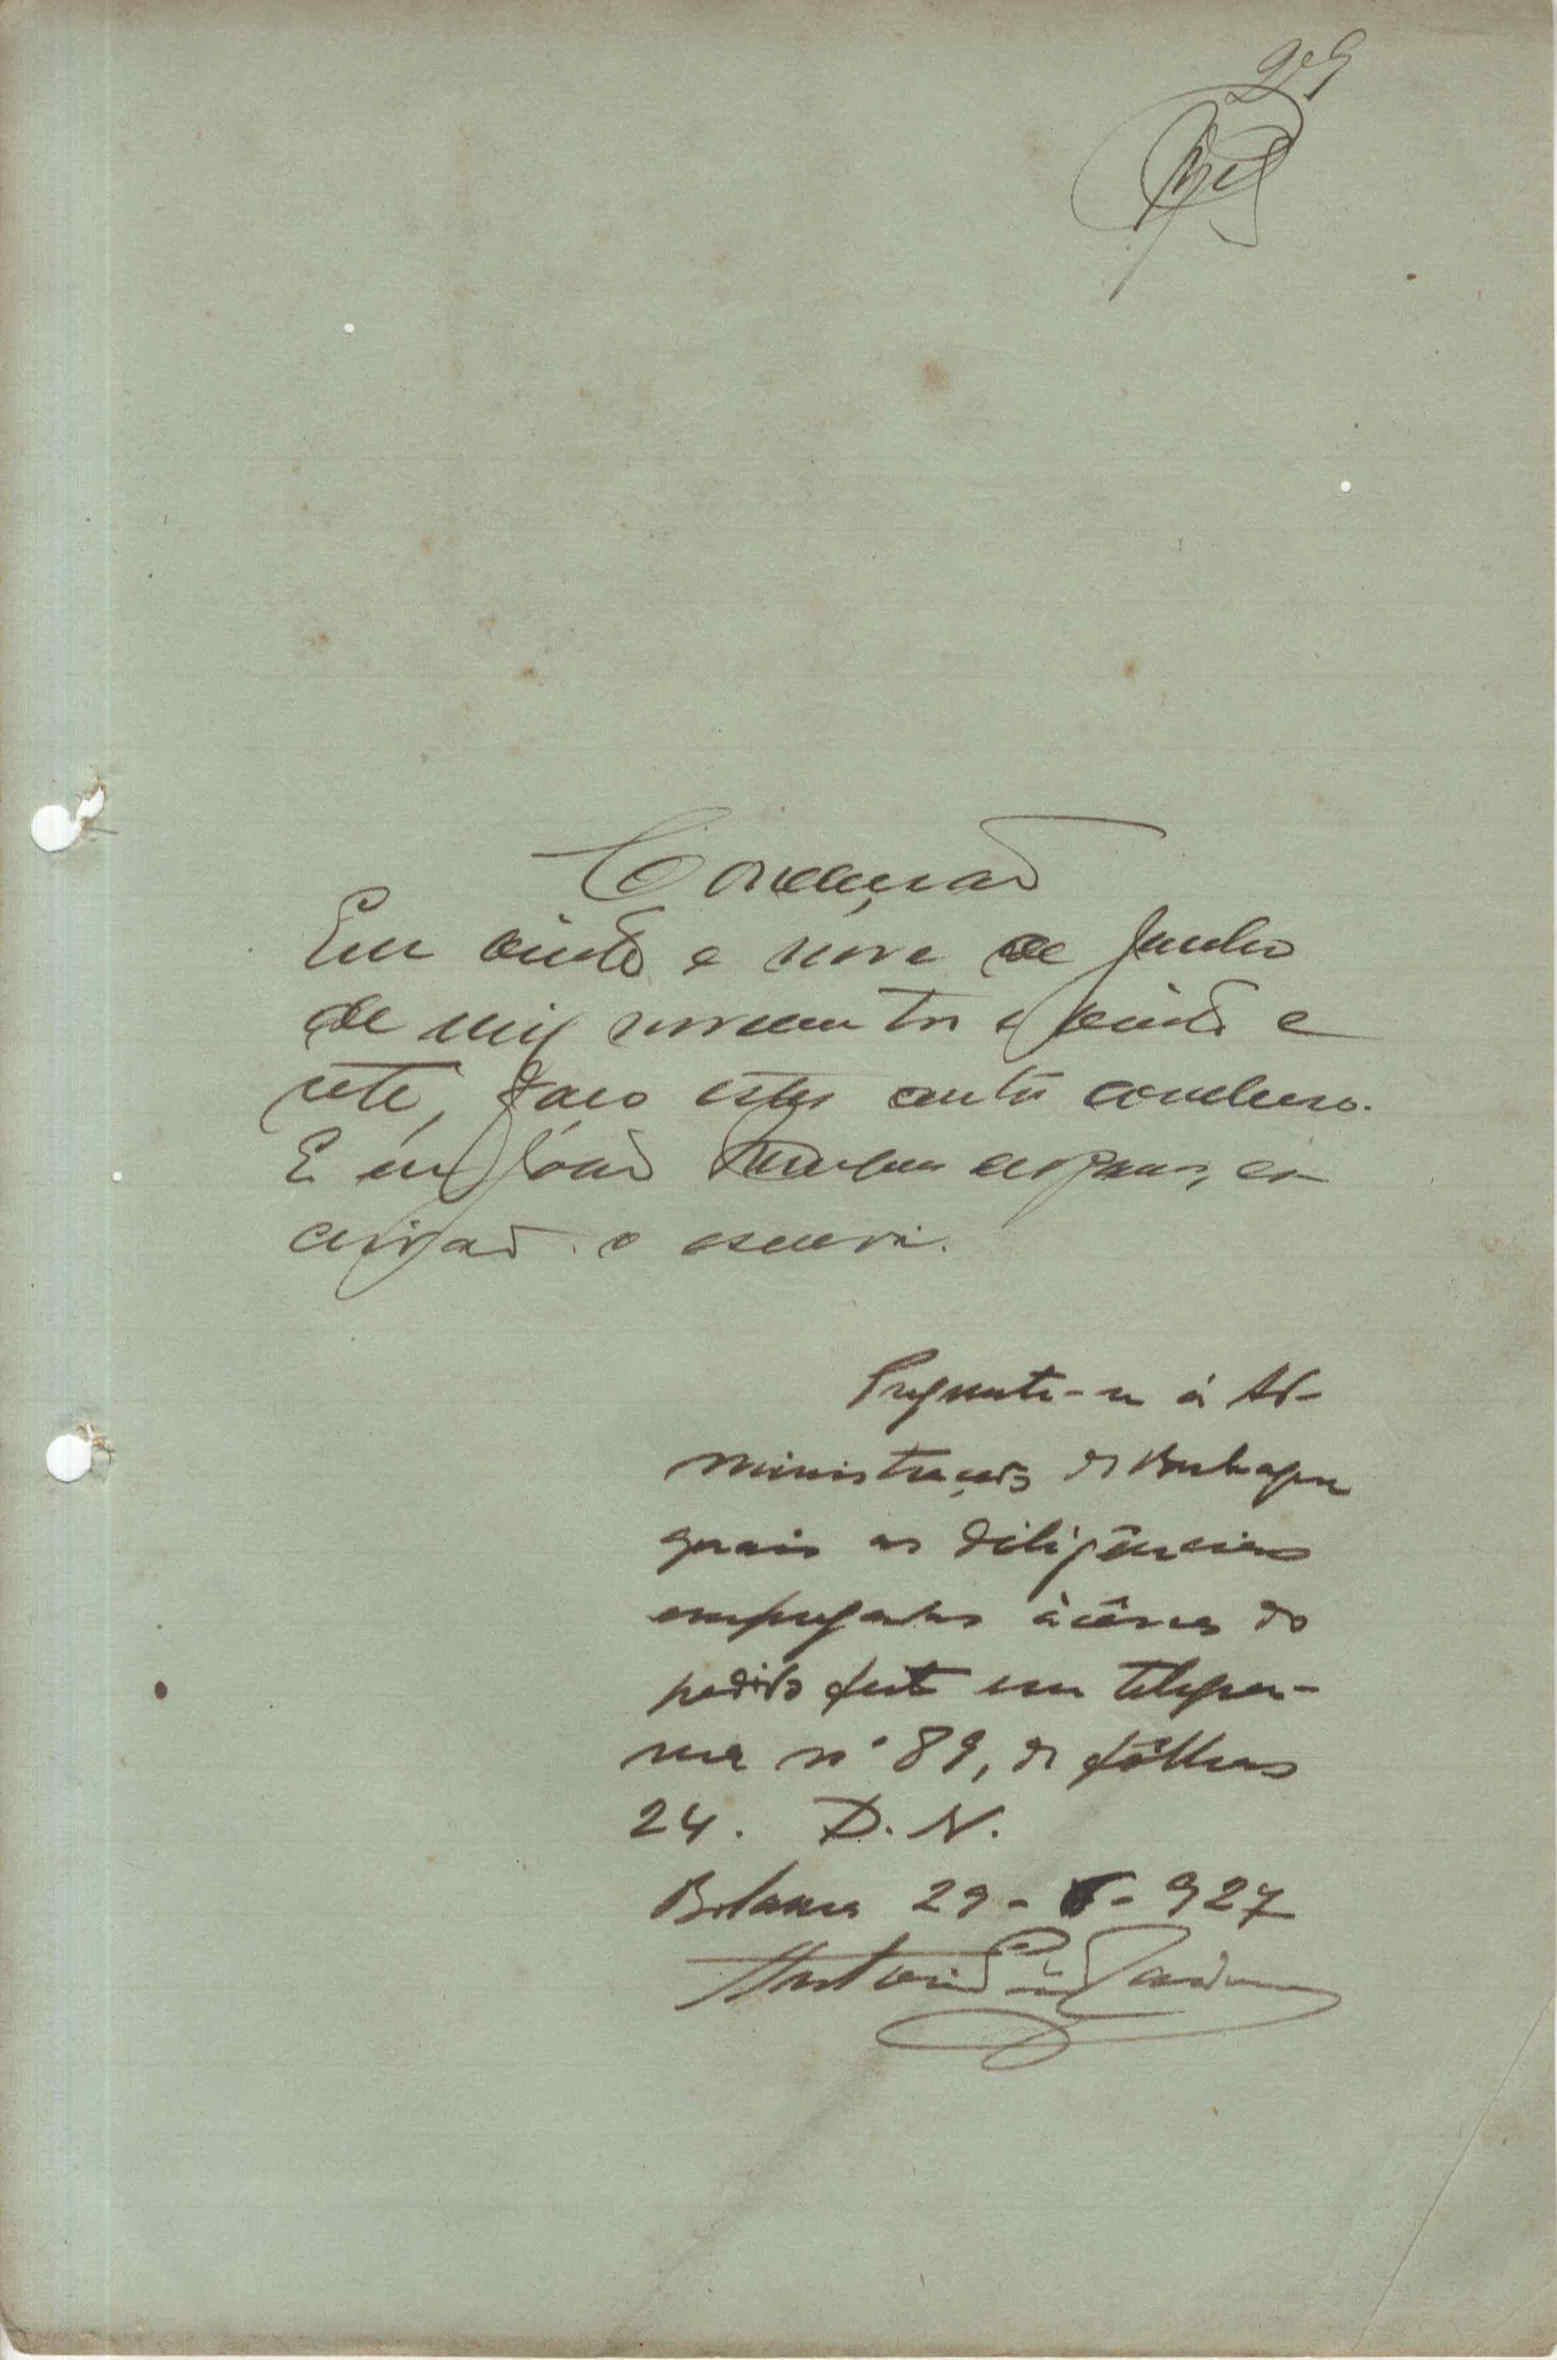 29
Conclusão
Em vinte e nove de Junho
de mil novecentos e vinte e
sete, faço estes autos conclusos.
E eu João es-
crivão o escrevi.
Pregunte-se à Ad-
ministração de
quais as diligências
empregadas àcêrca do
pedido feito em telegra-
ma nº 89, de fôlhas
24. D. N.
Bolama 29 - - 927
Antonio